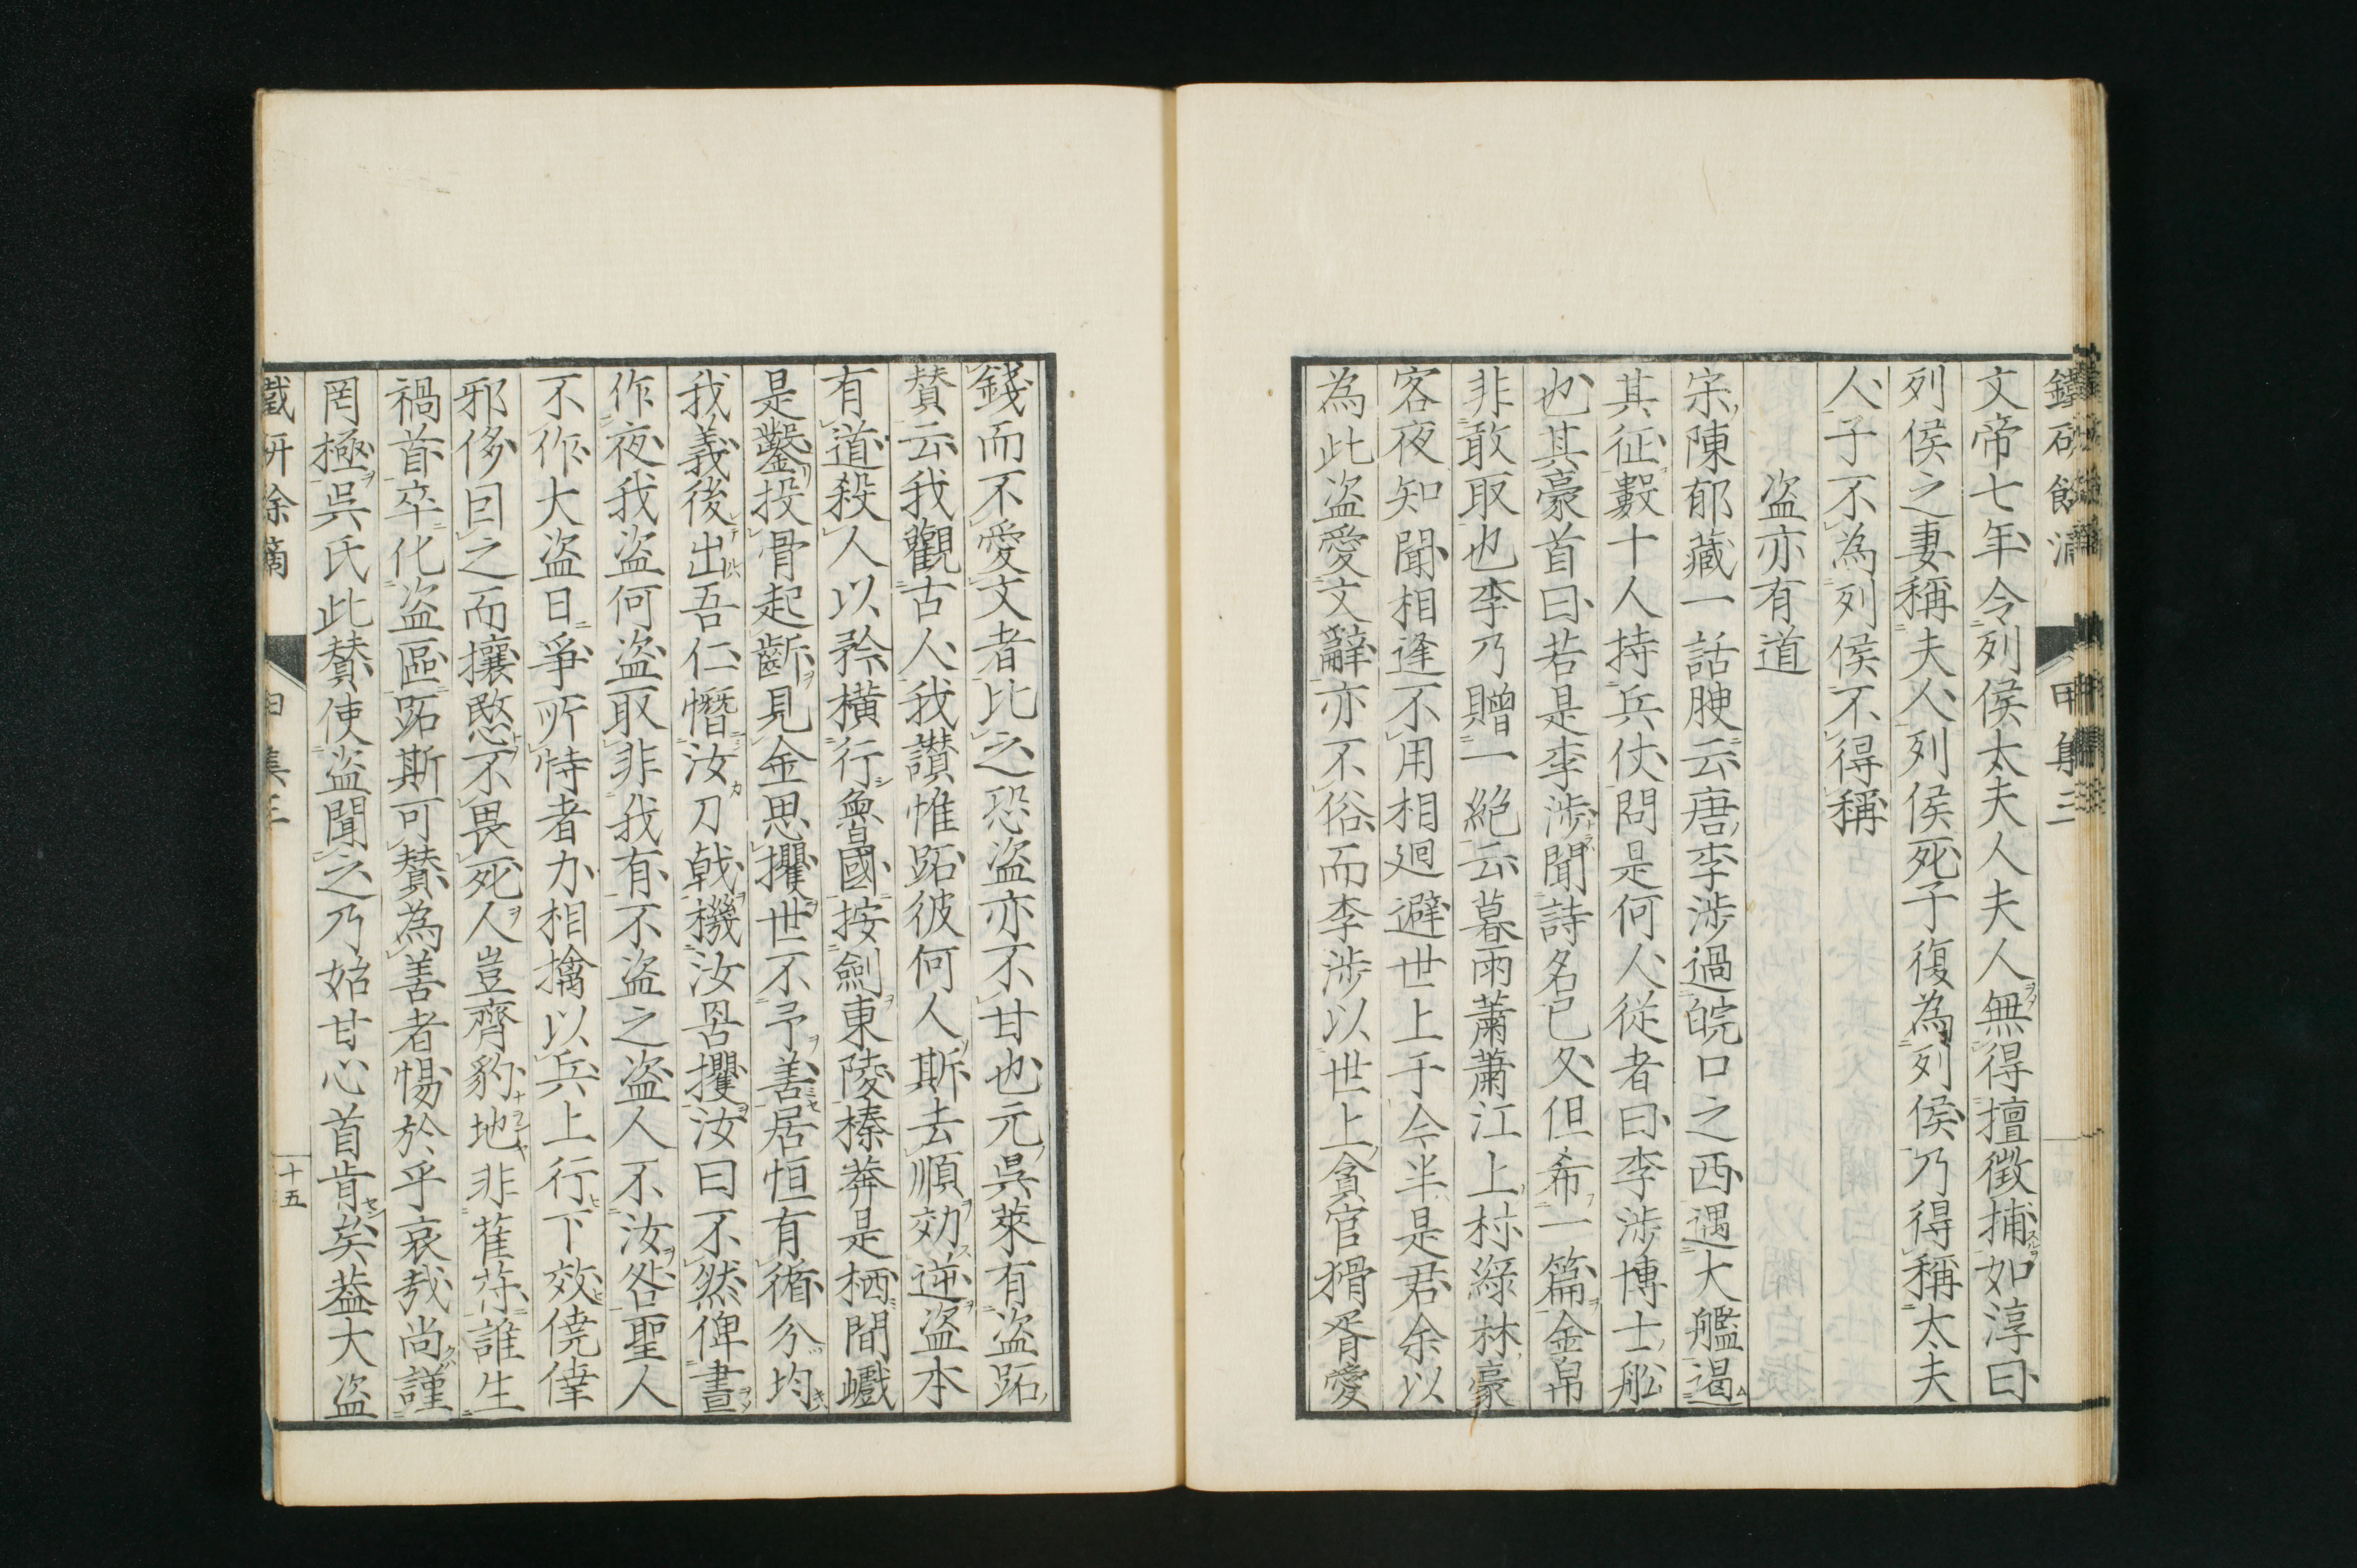 文帝七年令列侯太夫人夫人無得擅徴捕如淳曰
列侯之妻稱夫人列侯死子復為列侯乃得稱太夫
人子不為列侯不得稱
盗亦有道
宋陳郁藏一話腴云唐李渉過皖口之西遇大艦遏
其征數十人持兵仗問是何人從者曰李渉博士舩
也其豪首曰若是李渉聞詩名已久但希一篇金帛
非敢取也李乃贈一絶云暮雨蕭蕭江上村緑林豪
客夜知聞相逢不用相廻避世上于今半是君余以
為此盗愛文辭亦不俗而李渉以世上貪官猾胥愛
錢而不愛文者比之恐盗亦不甘也元呉萊有盗跖
賛云我觀古人我讃惟跖彼何人斯去順効逆盗本
有道殺人以矜横行魯國按劍東陵榛莽是栖間巇
是鑿投骨起齗見金思攫世不予善居恒有循分均
我義後出吾仁憯汝刀戟機汝罟攫汝曰不然俾晝
作夜我盗何盗取非我有不盗之盗人不汝咎聖人
不作大盗日爭所恃者力相擒以兵上行下效僥倖
邪侈因之而攘愍不畏死人豈齊豹地非萑苻誰生
禍首卒化盗區跖斯可賛為善者惕於乎哀哉尚謹
罔極呉氏此賛使盗聞之乃始甘心首肯矣葢大盗
十五